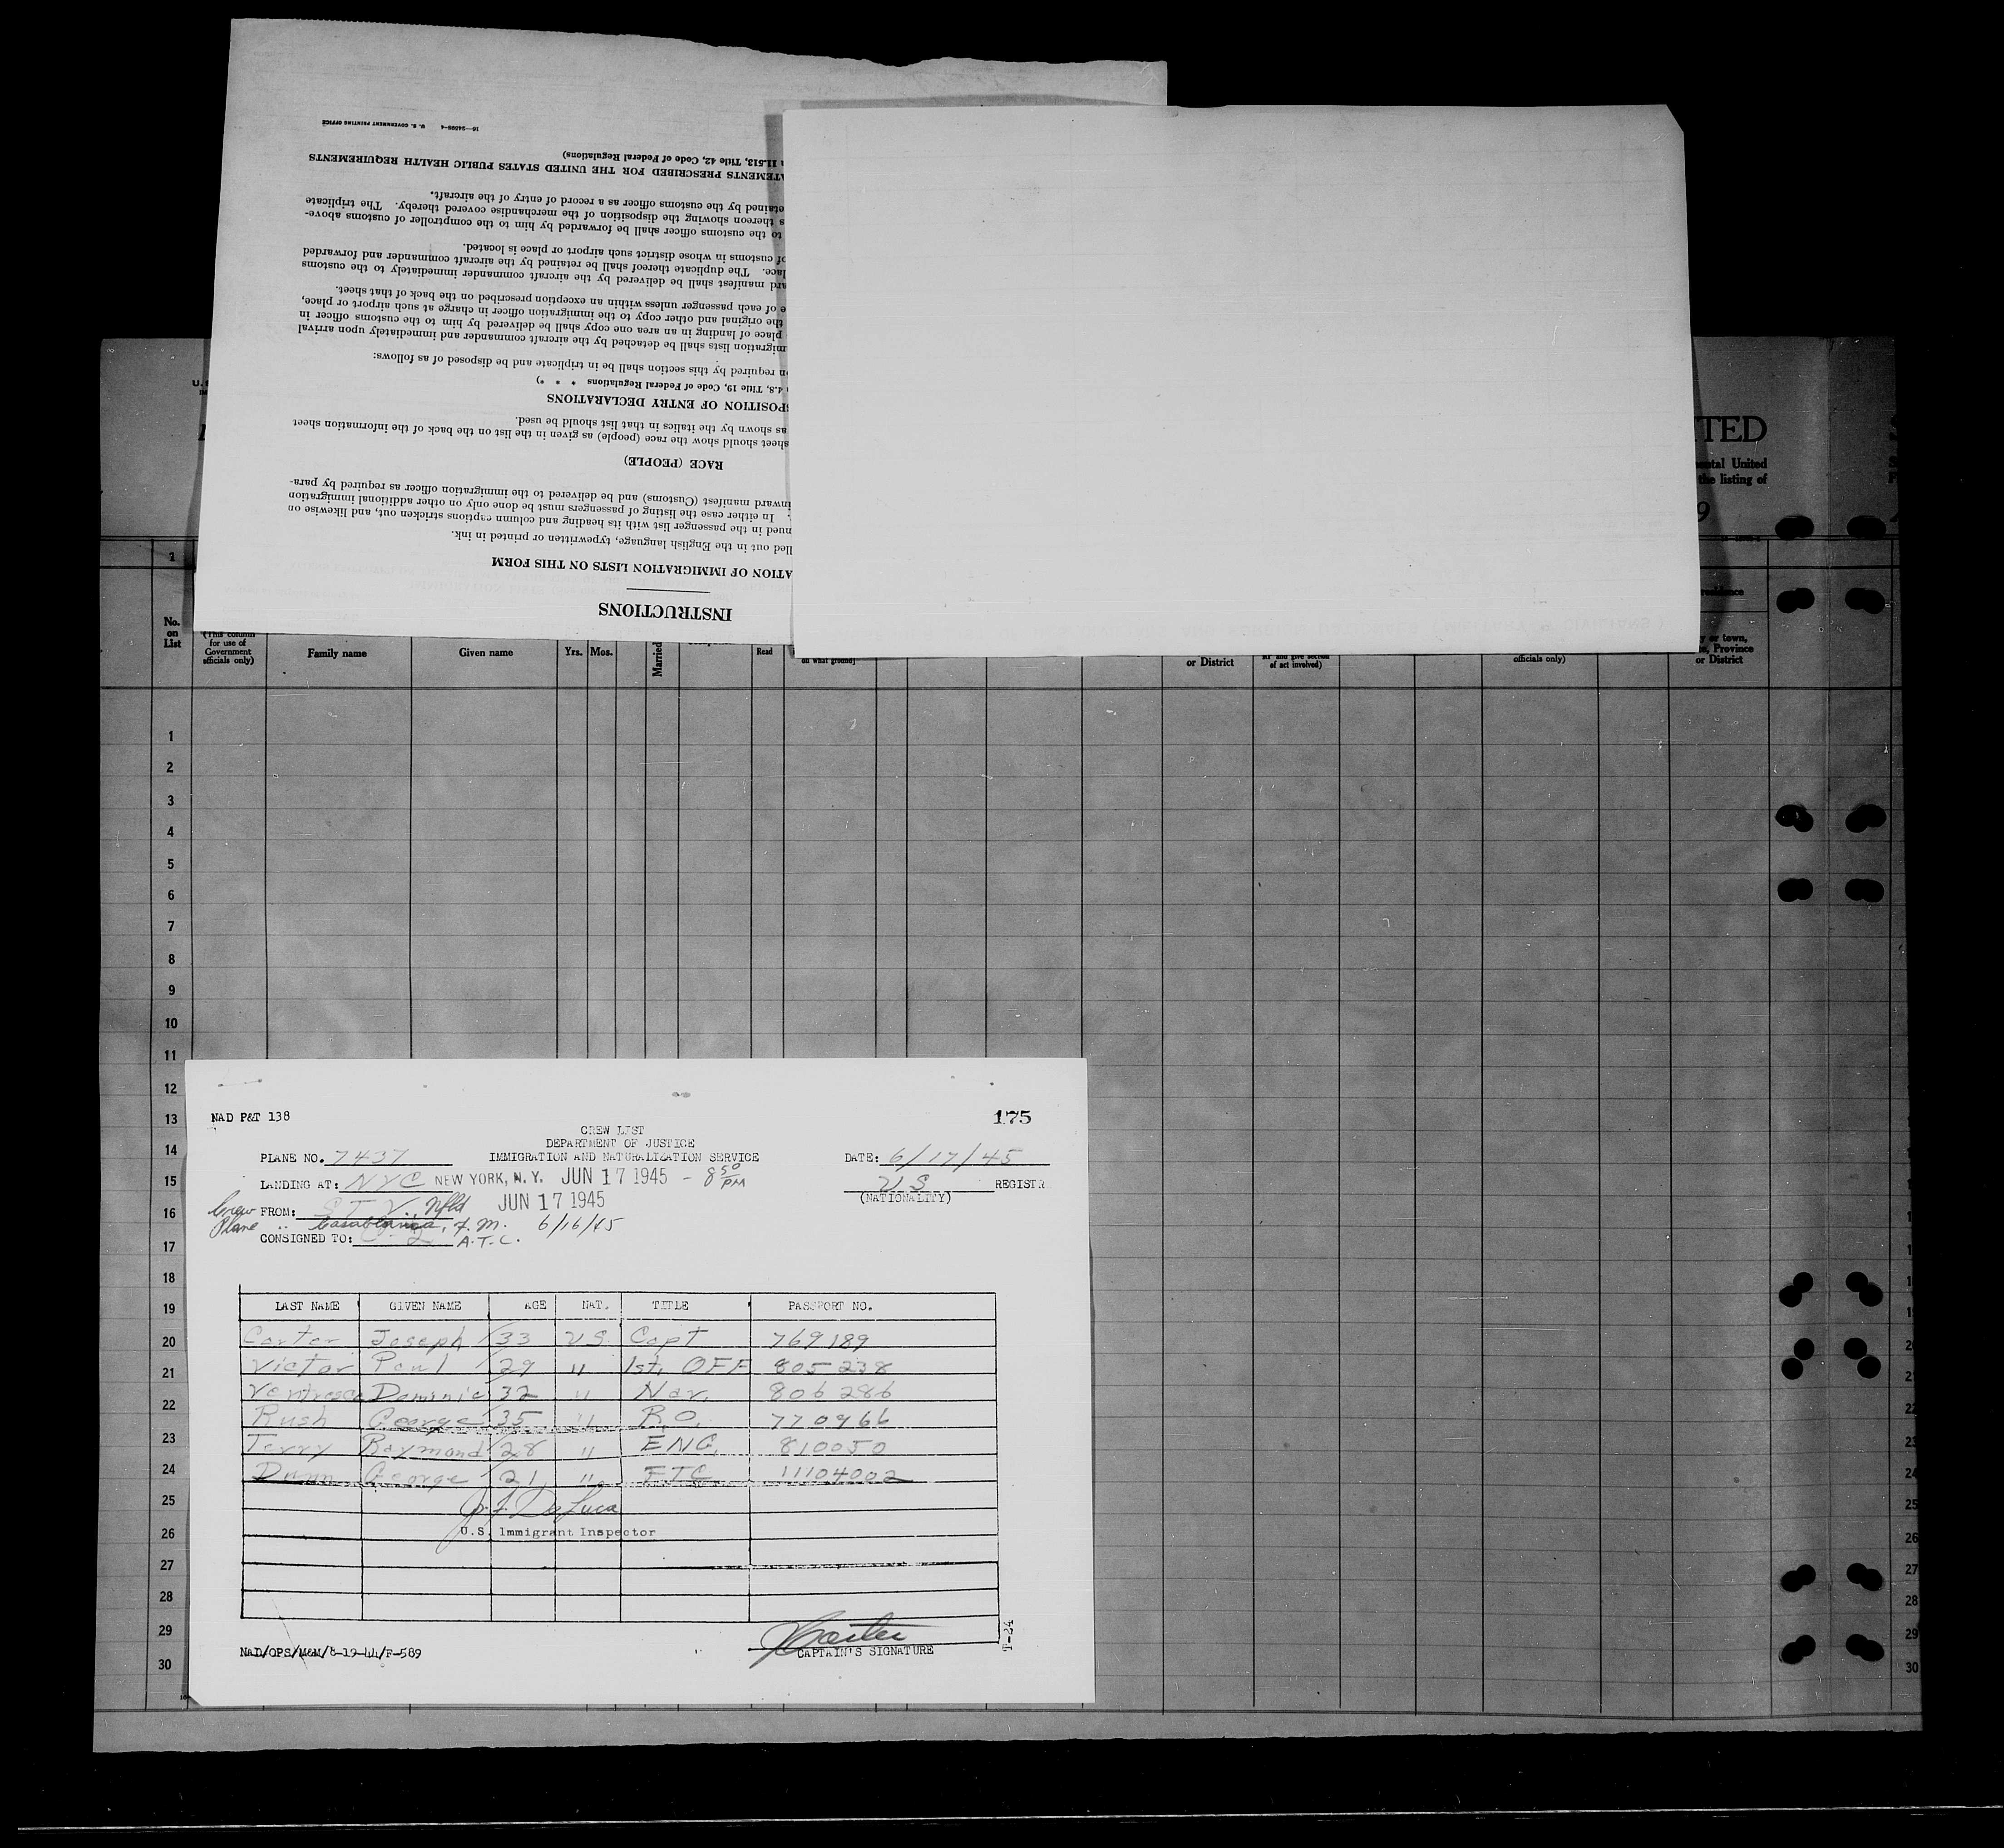 16—34598-4 U. S. GOVERNMENT PRINTING OFFICE
11.513, Title 42, Code of Federal Regulations)
PRESCRIBED FOR THE UNITED STATES PUBLIC HEALTH REQUIREMENTS
by the customs officer as a record of entry of the aircraft.
thereon showing the disposition of the merchandise covered thereby. The triplicate
to the customs officer shall be forwarded by him to the comptroller of customs above-
of customs in whose district such airport or place is located.
The duplicate thereof shall be retained by the aircraft commander and forwarded
manifest shall be delivered by the aircraft commander immediately to the customs
of each passenger unless within an exception prescribed on the back of that sheet.
the original and other copy to the immigration officer in charge at such airport or place,
place of landing in an area one copy shall be delivered by him to the customs officer in
lists shall be detached by the aircraft commander and immediately upon arrival
required by this section shall be in triplicate and be disposed of as follows:
4.8, Title 19, Code of Federal Regulations * * *)
OF ENTRY DECLARATIONS
as shown by the italics in that list should be used.
sheet should show the race (people) as given in the list on the back of the information sheet
RACE (PEOPLE)
inward manifest (Customs) and be delivered to the immigration officer as required by para-
In either case the listing of passengers must be done only on other additional immigration
in the passenger list with its heading and column captions stricken out, and likewise on
out in the English language, typewritten or printed in ink.
OF IMMIGRATION LISTS ON THIS FORM
INSTRUCTIONS
TED
United
the listing of
1
No. on List
(This column for use of Government officials only)
Family name
Given name
Yrs.
Mos.
Married
Read
on what ground)
or District
of act involved)
officials only)
or town, Province or District
1
2
3
4
5
6
7
8
9
10
11
12
13
14
15
16
17
18
19
20
21
22
23
24
25
26
27
28
29
30
NAD P&T 138
175
CREW LIST
DEPARTMENT OF JUSTICE
PLANE NO. 7437 IMMIGRATION AND NATURALIZATION SERVICE DATE: 6/17/45
LANDING AT: NYC NEW YORK, N.Y. JUN 17 1945 - 8 50 PM US REGISTR
(NATIONALITY)
Crew FROM: Nfld JUN 17 1945
Plane " Casablanca, F.M. 6/16/45
CONSIGNED TO: A.T.C.
LAST NAME GIVEN NAME AGE NAT. TITLE PASSPORT NO.
Carter Joseph 33 US Capt 769189
Victor Paul 29 " 1st. OFF 805238
Ventresca Dominic 32 " Nav. 806286
Rush George 35 " R.O. 770966
Terry Raymond 28 " ENG. 810050
Dunn George 21 " FTC 11104002
J. F. De Luca
U.S. Immigrant Inspector
T-24
NAD/OPS/M&M/8-19-44/F-589
CAPTAIN'S SIGNATURE